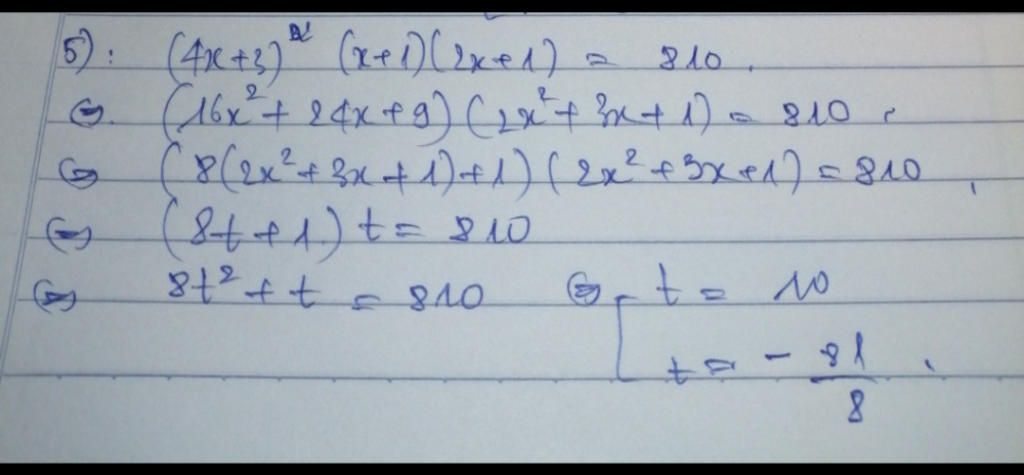 5): (4x+3)² (x+1)(2x+1) = 810.
⇔. (16x² + 24x + 9) (2x² + 3x + 1) = 810.
⇔ (8(2x² + 3x + 1) + 1) (2x² + 3x + 1) = 810,
⇔ (8t + 1.) t = 810
⇔ 8t² + t = 810 ⇔ [ t = 10
t = - 81/8.